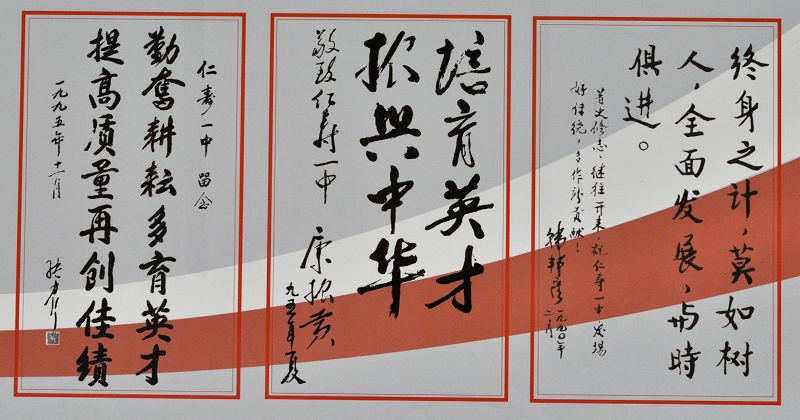 终身之计，莫如树
人，全面发展，与時
俱进。
著史修志，继往开来，祝仁寿一中发扬
好传统，多作新贡献！
韩邦彦 一九九〇年
二月
培育英才
振興中华
敬致仁寿一中
康振黄
九五年夏
仁寿一中 留念
勤奮耕耘多育英才
提高质量再创佳績
一九九五年十一月